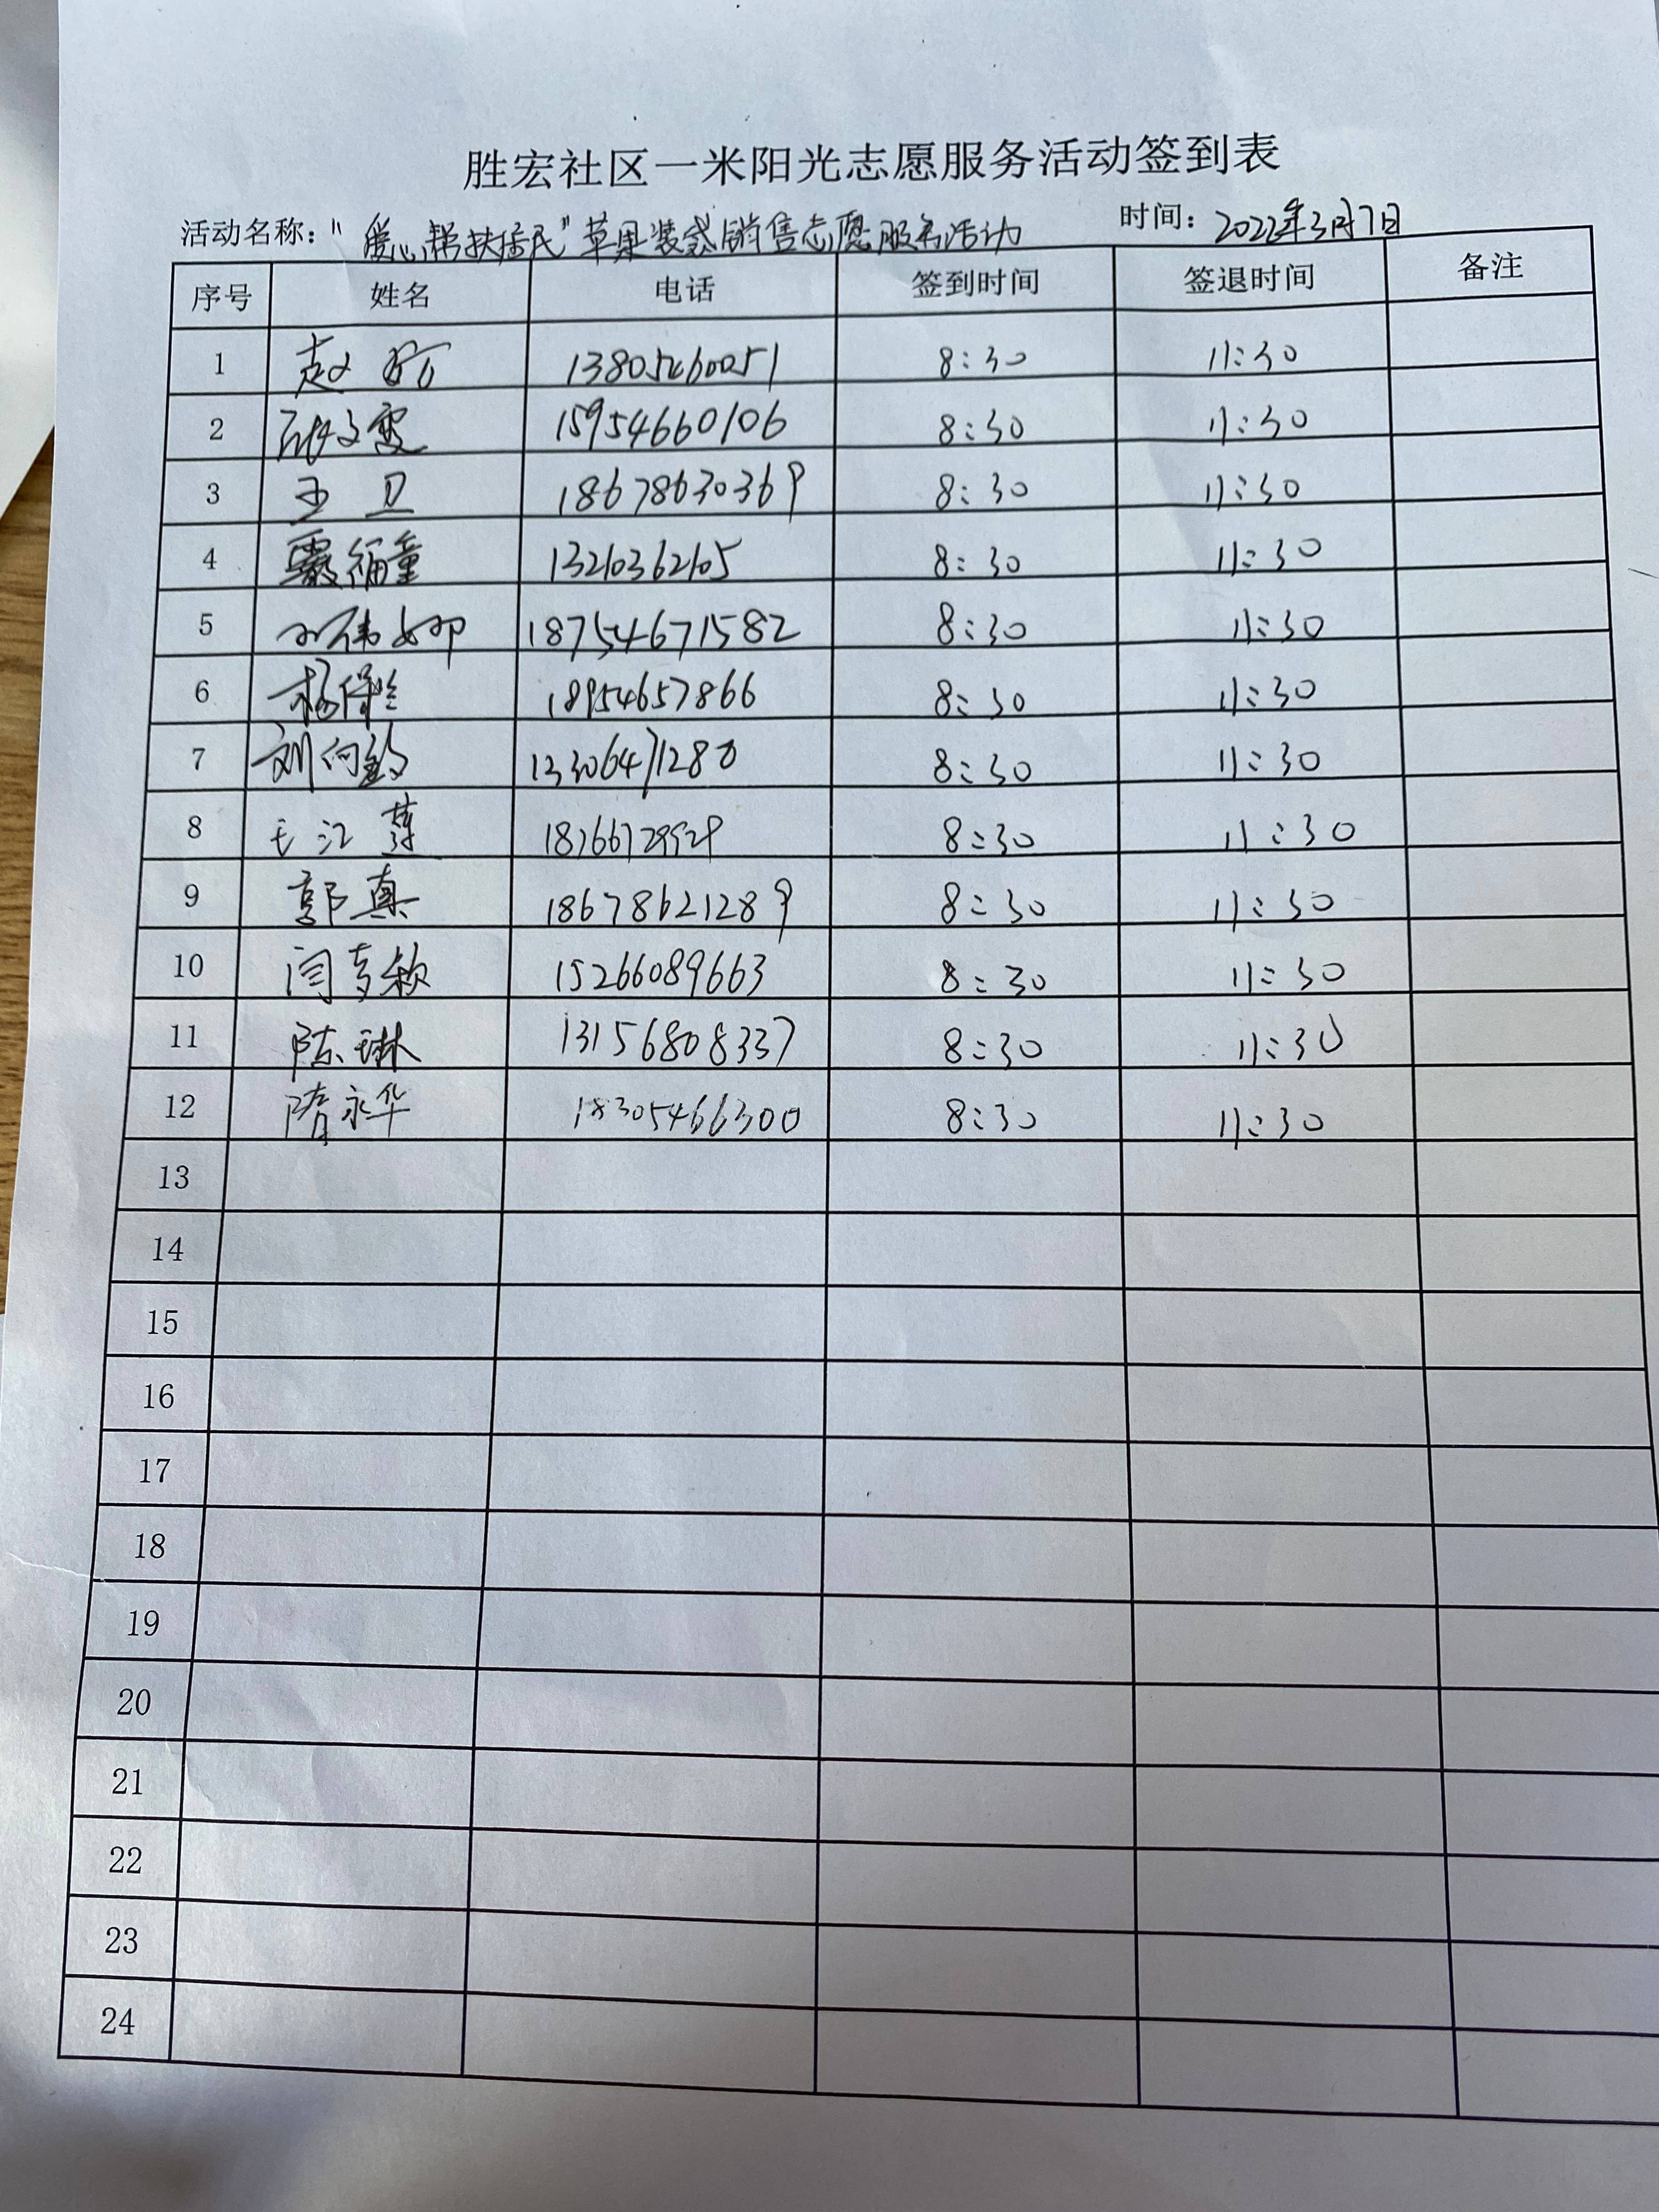 胜宏社区一米阳光志愿服务活动签到表
活动名称："爱心帮扶居民"苹果装袋销售志愿服务活动 时间：2022年3月7日
序号 姓名 电话 签到时间 签退时间 备注
1 赵 13805460051 8:30 11:30
2 15954660106 8:30 11:30
3 王卫 18678630369 8:30 11:30
4 13210362105 8:30 11:30
5 18754671582 8:30 11:30
6 杨保 18954657866 8:30 11:30
7 刘向 13306471280 8:30 11:30
8 王江莲 8:30 11:30
9 郭真 18678621289 8:30 11:30
10 闫梦颖 15266089663 8:30 11:30
11 陈琳 13156808337 8:30 11:30
12 隋永华 18305466300 8:30 11:30
13
14
15
16
17
18
19
20
21
22
23
24